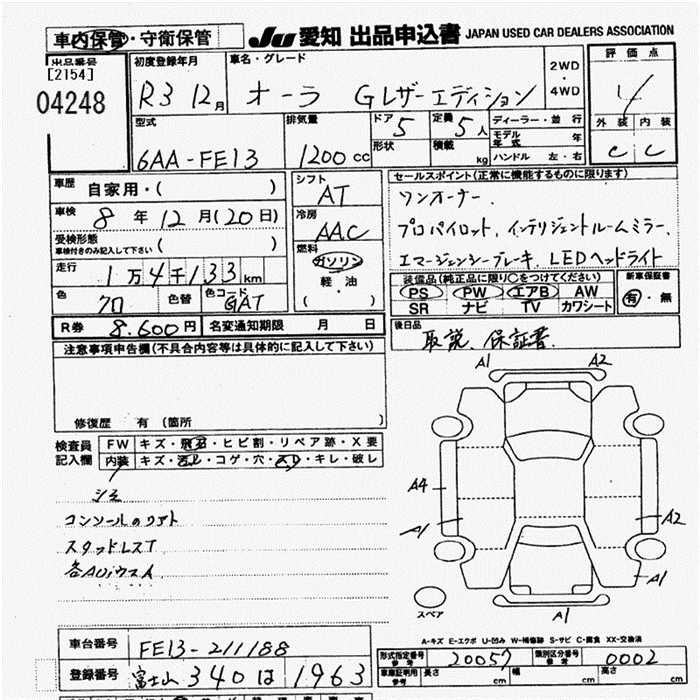 車内保管・守衛保管
JU 愛知 出品申込書 JAPAN USED CAR DEALERS ASSOCIATION
出品番号
[2154]
04248
初度登録年月
R3 12月
車名・グレード
オーラ Gレザーエディション
2WD・4WD
評価点
4
型式
6AA-FE13
排気量
1200cc
ドア 5
形状
定員 5人
積載 kg
ディーラー・並行
モデル年式 年
ハンドル 左・右
外装 内装
C C
車歴 自家用・( )
車検 8年 12月(20日)
受検形態
車検付きのみ記入して下さい ( )
走行 1万4千133km
色 クロ 色替 色コード GAT
R券 8.600円 名変通知期限 月 日
シフト
AT
冷房
AAC
燃料
ガソリン
軽油
( )
セールスポイント(正常に機能するものに限ります)
ワンオーナー.
プロパイロット, インテリジェントルームミラー,
エマージェンシーブレーキ, LEDヘッドライト
装備品(純正品に限り○をつけてください)
PS PW エアB AW
SR ナビ TV カワシート
新車保証書
有・無
後日品
取説. 保証書.
注意事項申告欄(不具合内容等は具体的に記入して下さい)
修復歴 有(箇所 )
検査員記入欄
FW キズ・飛石・ヒビ割・リペア跡・X要
内装 キズ・汚レ・コゲ・穴・スレ・キレ・破レ
シミ
コンソールのリアト
スタッドレスT
A1 A2
A4
A1 A2
A1
A1
スペア
A-キズ E-エクボ U-凹み W-補修跡 S-サビ C-腐食 XX-交換済
車台番号 FE13-211188
登録番号 富士山 340 は 1963
形式指定番号 参考 20057
類別区分番号 参考 0002
車庫証明用 参考 長さ cm 幅 cm 高さ cm